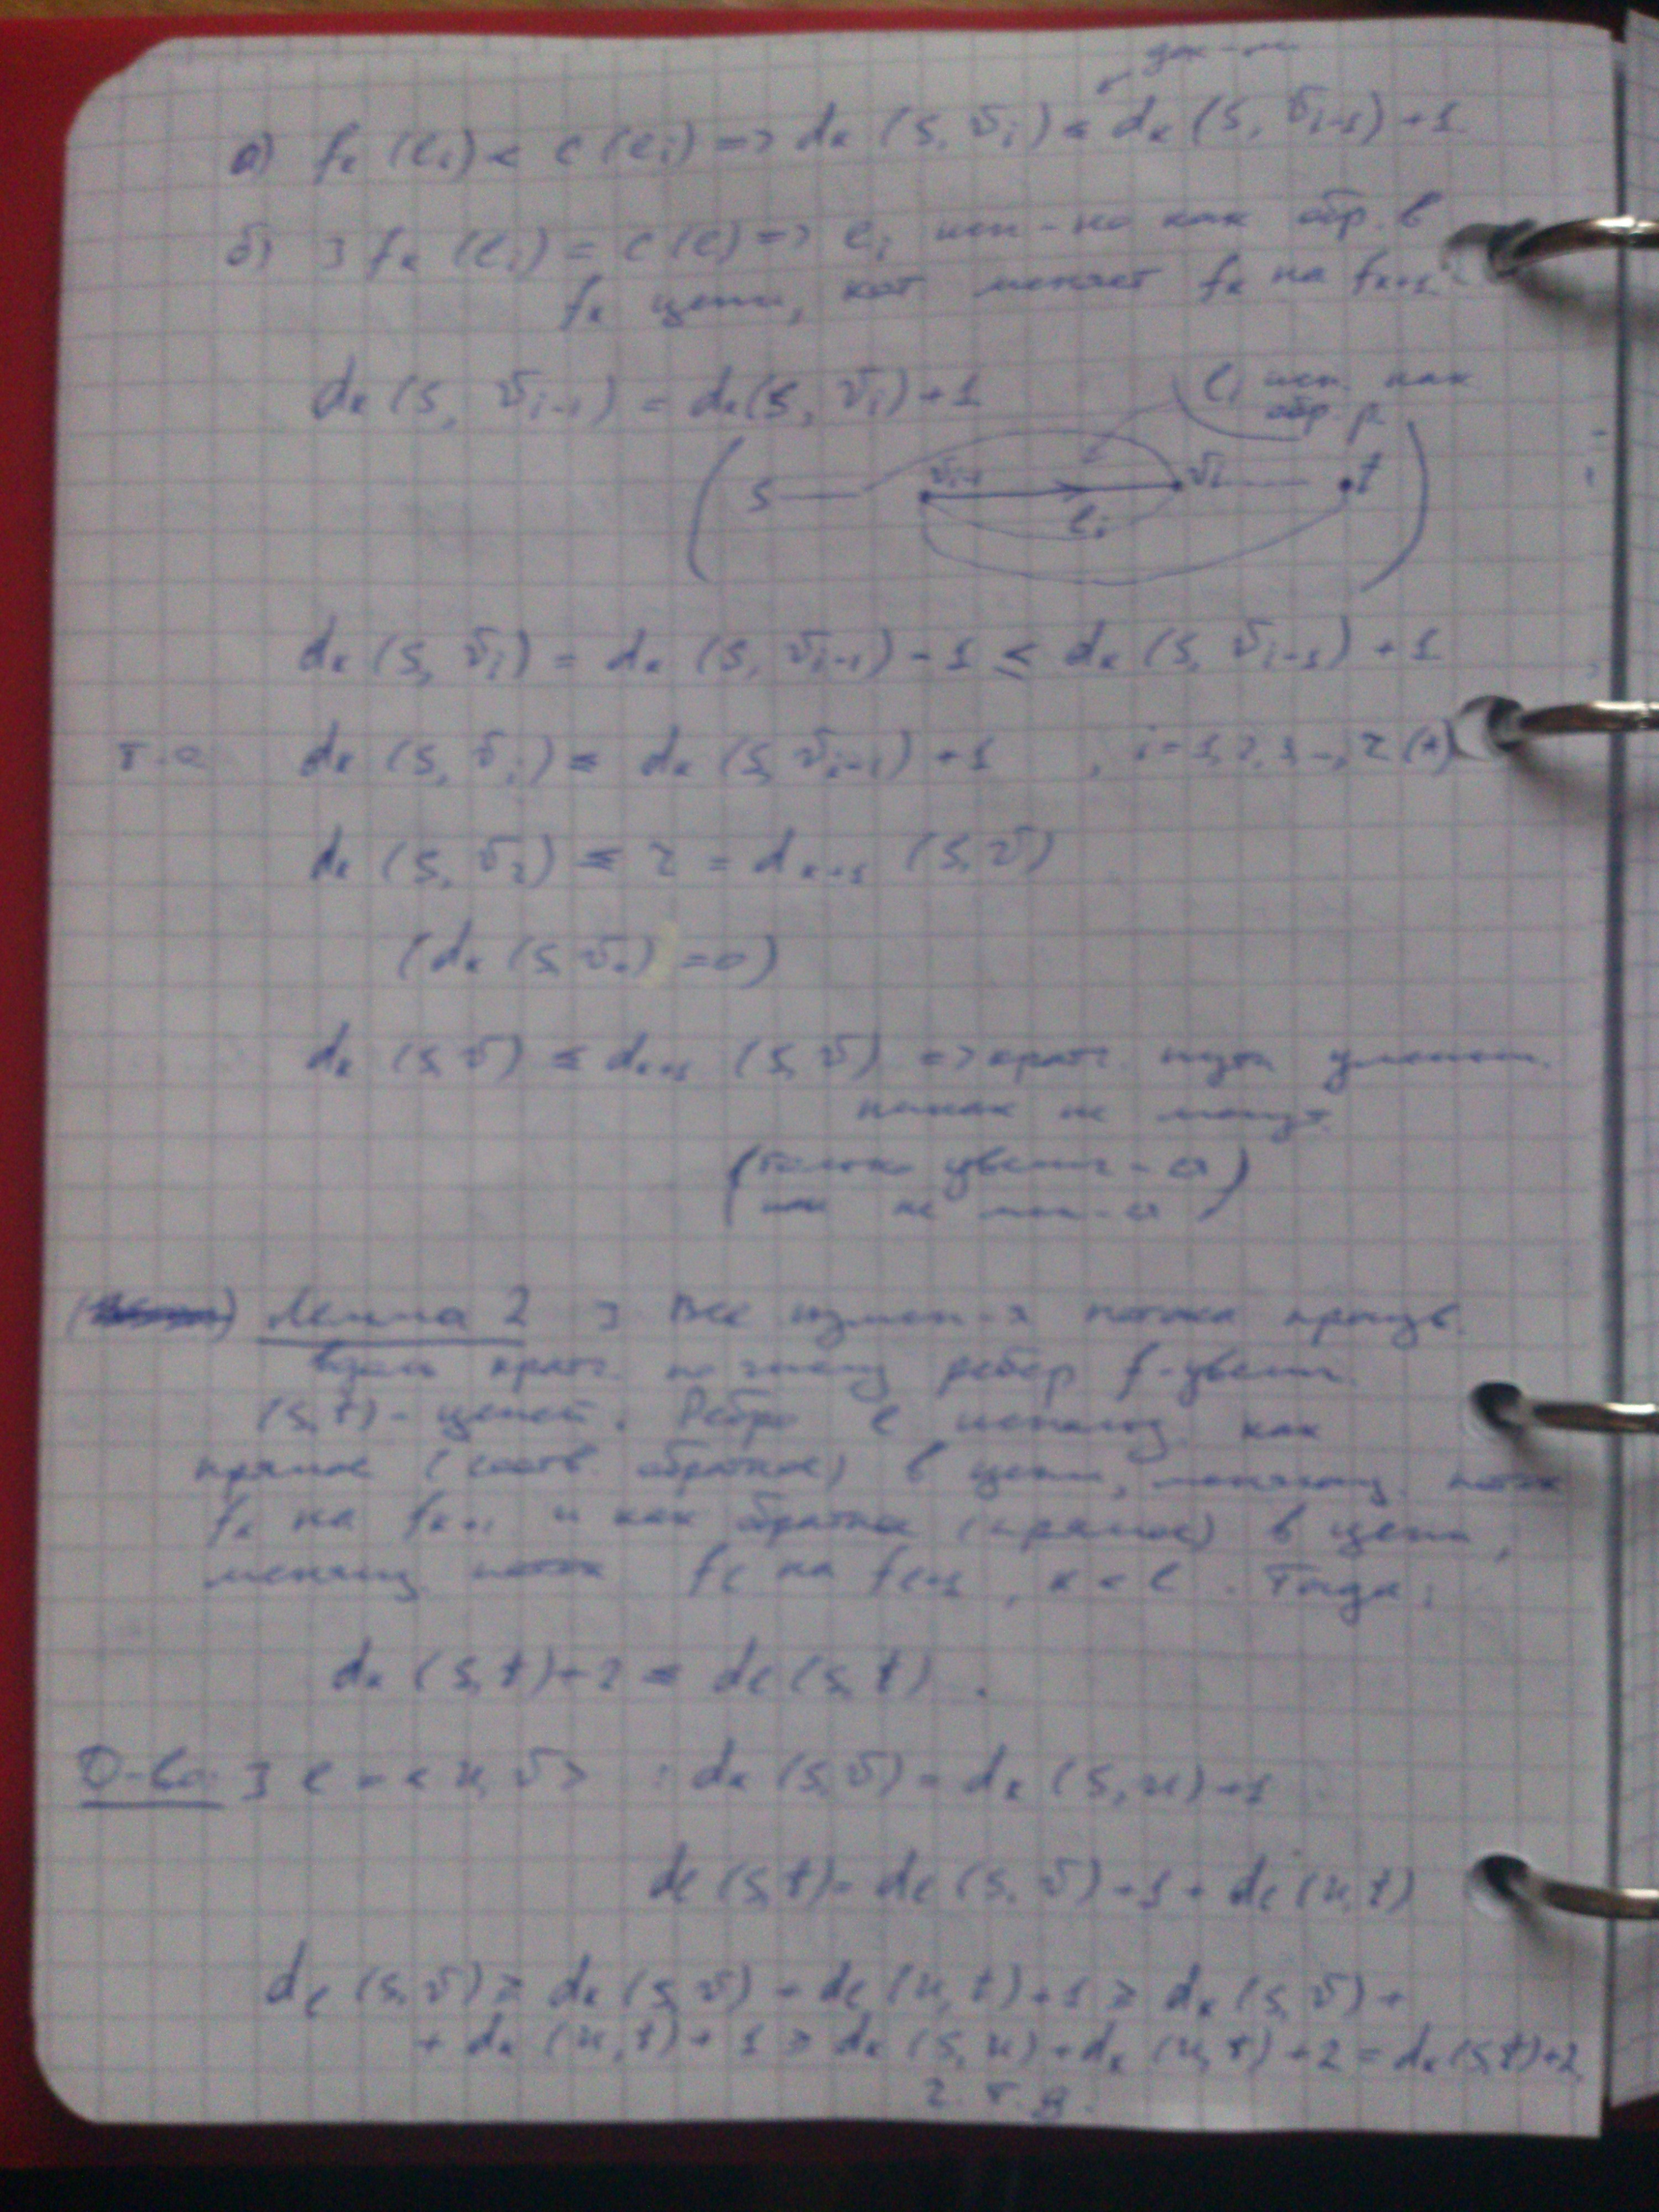 док-ли
а) fₖ(eᵢ) < c(eᵢ) => dₖ(s, vᵢ) ≤ dₖ(s, vᵢ₋₁) + 1
б) ] fₖ(eᵢ) = c(e) => eᵢ исп-но как обр. в
fₖ цепи, кот меняет fₖ на fₖ₊₁
dₖ(s, vᵢ₋₁) = dₖ(s, vᵢ) + 1
eᵢ исп. как
обр. р.
s vᵢ₋₁ vᵢ t
eᵢ
dₖ(s, vᵢ) = dₖ(s, vᵢ₋₁) - 1 ≤ dₖ(s, vᵢ₋₁) + 1
т.о. dₖ(s, vᵢ) ≤ dₖ(s, vᵢ₋₁) + 1 , i = 1, 2, 3 ..., r (*)
dₖ(s, vᵣ) ≤ r = dₖ₊₁(s, v)
(dₖ(s, v₀) = 0)
dₖ(s, v) ≤ dₖ₊₁(s, v) => кратч. пути уменьш.
никак не могут
(только увелич-ся)
не мен-ся
Лемма 2 ] Все измен-я потока произв.
вдоль кратч. по числу ребер f-увелич.
(s, t) - цепей. Ребро e использ. как
прямое (соотв. обратное) в цепи, меняющ. поток
fₖ на fₖ₊₁ и как обратное (прямое) в цепи,
меняющ. поток fₗ на fₗ₊₁, k < l. Тогда:
dₖ(s, t) + 2 ≤ dₗ(s, t).
D-во: ] e = <u, v> : dₖ(s, v) = dₖ(s, u) + 1
dₗ(s, t) = dₗ(s, v) + 1 + dₗ(u, t)
dₗ(s, v) ≥ dₖ(s, v) + dₗ(u, t) + 1 ≥ dₖ(s, v) +
+ dₖ(u, t) + 1 ≥ dₖ(s, u) + dₖ(u, t) + 2 = dₖ(s, t) + 2
ч. т. д.